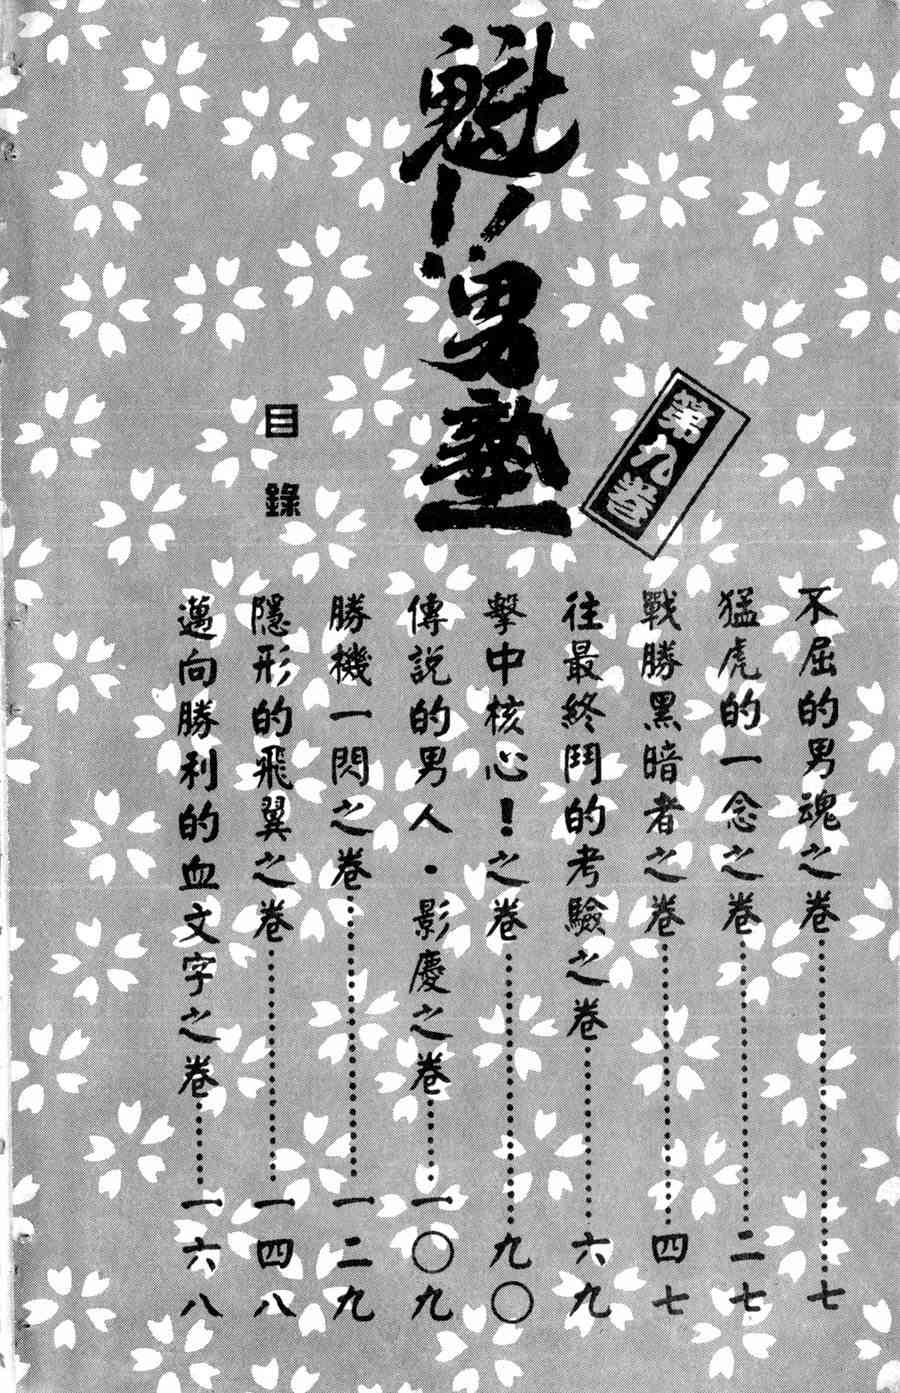 魁!!男塾
第九卷
目錄
不屈的男魂之卷……七
猛虎的一念之卷……二七
戰勝黑暗者之卷……四七
往最終鬥的考驗之卷……六九
擊中核心！之卷……九〇
傳說的男人・影慶之卷……一〇九
勝機一閃之卷……一二九
隱形的飛翼之卷……一四八
邁向勝利的血文字之卷……一六八